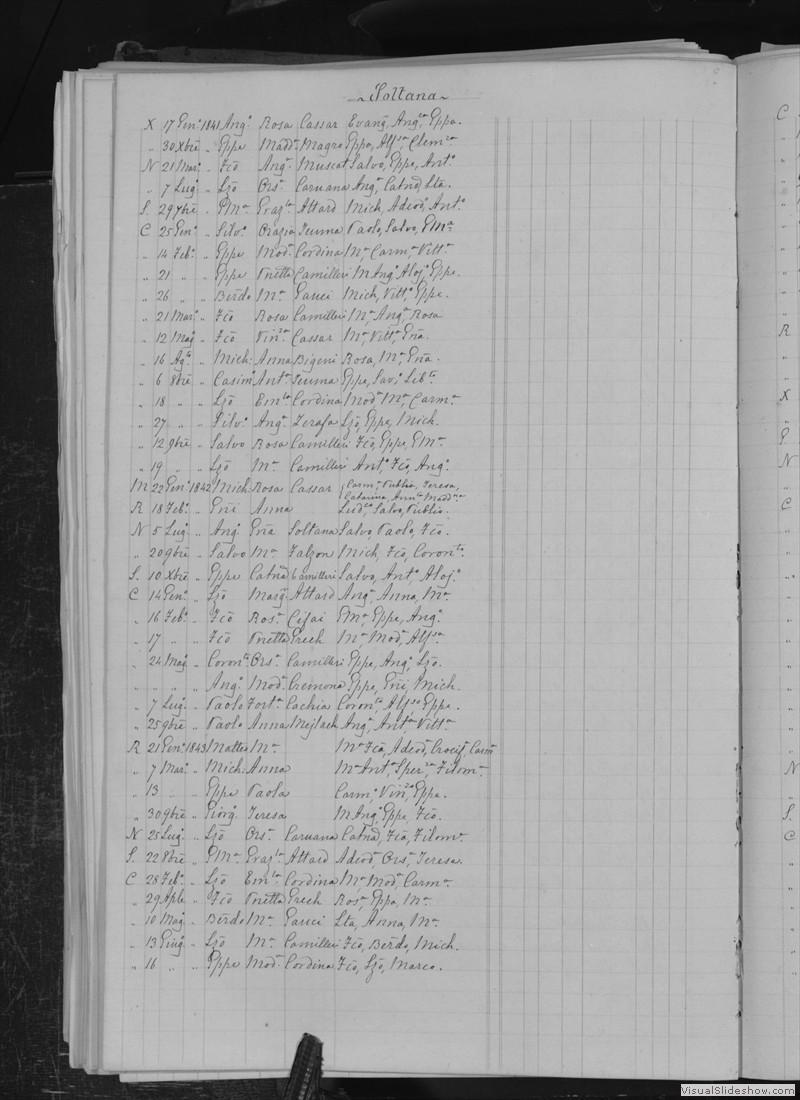 Soltana
X 17 Gen.º 1841 Ang.º Rosa Cassar Evang, Ang.ca Eppa.
" 30 Xbre " Eppe Madd.a Magro Eppa, Alf.sa Clem.za
N 21 Mar.º " Fcō Ang.a Muscat Salvo, Eppe, Ant.º
" 7 Lug.º " Ljō Ors.a Caruana Ang.a Catnā, Lta.
S. 29 7bre " GMa. Graz.la Attard Mich, Adeod.º Ant.º
C 25 Gen.º " Silv.º Orazia Scuma Paolo, Salvo, GMa
" 14 Feb.º " Eppe Mod.a Cordina M.a Carm.a Vitt.a
" 21 " " Eppe Pnetta Camilleri M Ang.a Aloj.a Eppa.
" 26 " " Berdo M.a Gauci Mich, Vitt.a Eppe.
" 21 Mar.º " Fcō Rosa Camilleri M.a Ang.a Rosa
" 12 Mag.º " Fcō Vin.za Cassar M.a Vitt.a Gña.
" 16 Ag.to " Mich: Anna Bigeni Rosa, M.a Gña.
" 6 8bre " Casim.º Ant.a Scuma Eppa, Sav.a Lib.ta
" 18 " " Ljō Em.la Cordina Mod.a M.a Carm.a
" 27 " " Silv.º Ang.a Zerafa Ljō, Eppe, Mich.
" 12 9bre " Salvo Rosa Camilleri Fcō, Eppe, GMa.
" 19 " " Ljō M.a Camilleri Ant.º Fcō, Ang.º
M 22 Gen.º 1842 Mich: Rosa Cassar Carm.a Publia, Teresa,
Catarina, Ann.ta Madd.a
R 18 Feb.º " Gñi Anna Lud.co Salvo, Publio.
N 5 Lug.º " Ang.º Gña Soltana Salvo, Paolo, Fcō.
" 20 9bre " Salvo M.a Falzon Mich, Fcō, Coron.to
S. 10 Xbre " Eppe Catnā Camilleri Salvo, Ant.º Aloj.º
C 14 Gen.º " Ljō Marg.a Attard Ang.a Anna, M.a
" 16 Feb.º " Fcō Ros.a Cifai GMa. Eppe, Ang.º
" 17 " " Fcō Pnetta Grech M.a Mod.a Alf.sa
" 24 Mag.º " Coron.to Ors.a Camilleri Eppe, Ang.º Ljō.
" " " " Ang.º Mod.a Cremona Eppe, Gñi, Mich.
" 7 Lug.º " Paolo Fort.a Cachia Coron.ta Alf.sa Eppa.
" 25 9bre " Paolo Anna Mejlach Ang.a Ant.a Vitt.a
R 21 Gen.º 1843 Matteo M.a M.a Fcā, Adeod.a Crocif.a Carm.a
" 7 Mar.º " Mich: Anna M.a Ant.a Sper.za Filom.a
" 13 " " Eppe Paola Carm.º Vin.zo Eppe.
" 30 9bre " Giorg.º Teresa M Ang.º Eppe, Fcō.
N 25 Lug.º " Ljō Ors.a Caruana Catnā, Fcā, Filom.a
S. 22 8bre " GMa. Graz.la Attard Adeod.a Ors.a Teresa.
C 28 Feb.º " Ljō Em.la Cordina M.a Mod.a Carm.a
" 29 Aple " Fcō Pnetta Grech Ros.a Eppa, M.a
" 10 Mag.º " Berdo M.a Gauci Lta, Anna, M.a
" 13 Giug.º " Ljō M.a Camilleri Fcō, Berdo, Mich.
" 16 " " Eppe Mod.a Cordina Fcō, Ljō, Marco.
C
R
X
S.
N
C
N
S.
C
VisualSlideshow.com